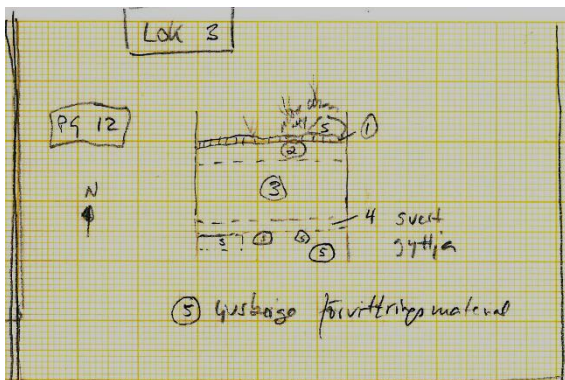 LOK 3
PG 12
N
S
1
2
3
4 svart
gyttja
S S S
5
5 ljusbeige förvittringsmaterial